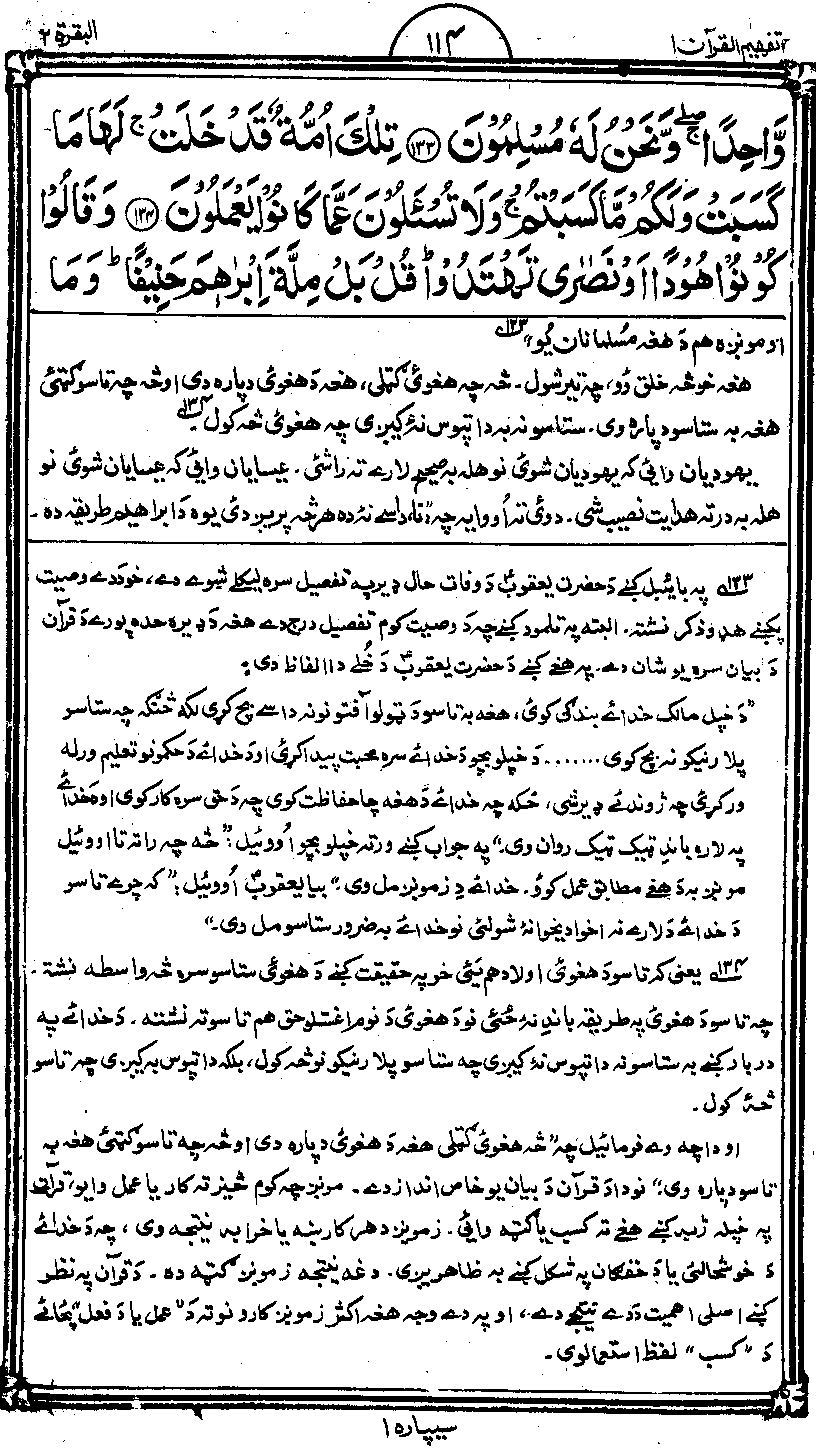 تفهیم القرآن ۱
۱۱۴
البقرة ۲
وَّاحِدًا ۖۚ وَّنَحْنُ لَهٗ مُسْلِمُوْنَ ﴿۱۳۳﴾ تِلْكَ اُمَّةٌ قَدْ خَلَتْ ۚ لَهَا مَا
كَسَبَتْ وَلَكُمْ مَّا كَسَبْتُمْ ۚ وَلَا تُسْـَٔلُوْنَ عَمَّا كَانُوْا يَعْمَلُوْنَ ﴿۱۳۴﴾ وَقَالُوْا
كُوْنُوْا هُوْدًا اَوْ نَصٰرٰى تَهْتَدُوْا ؕ قُلْ بَلْ مِلَّةَ اِبْرٰهٖمَ حَنِيْفًا ؕ وَمَا
او مونږه هم دَ هغه مسلمانان یُو“ ۱۳۳
هغه خو څه خلق وُو، چه تیر شول ـ څه چه هغوئ ګټلی، هغه دَ هغوئ دپاره دی او څه چه تاسو ګټئ
هغه به ستاسو دپاره وی ـ ستاسو نه به دا تپوس نۀ کیږی چه هغوئ څه کول ۱۳۴
یهودیان وائی که یهودیان شوئ نو هله به صحیح لارے ته راشئ ـ عیسایان وائی که عیسایان شوئ نو
هله به درته هدایت نصیب شی ـ دوئ ته اووایه چه ”نا، داسے نۀ ده هر څه پریږدئ یوه دَ ابراهیم طریقه ده ـ
۱۳۳ په بائیبل کښے دَ حضرت یعقوبؑ دَ وفات حال ډیر په تفصیل سره لیکلے شوے دے، خو دَ دے وصیت
پکښے هډو ذکر نشته ـ البته په تلمود کښے چه دَ وصیت کوم تفصیل درج دے هغه دَ ډیره حده پورے دَ قرآن
دَ بیان سره یو شان دے ـ په هغے کښے دَ حضرت یعقوبؑ دَ خُلے دا الفاظ دی:
”دَ خپل مالک خدائے بندګی کوئ، هغه به تاسو دَ ټولو آفتونو نه داسے بچ کړی لکه څنګه چه ستاسو
پلار نیکو نه بچ کوی ....... دَ خپلو بچو دَ خدائے سره محبت پیدا کړئ او دَ خدائے دَ حکمونو تعلیم ورله
ورکړئ چه ژوندئے ډیر شی، ځکه چه خدائے دَ هغه چا حفاظت کوی چه دَ حق سره کار کوی او دَ خدائے
په لاره باندِ ټهیک ټهیک روان وی ـ“ په جواب کښے ورته خپلو بچو اُووئیل: ”څه چه راته تا اووئیل
مونږ به دَ هغے مطابق عمل کوو ـ خدائے دِ زمونږ مل وی ـ“ بیا یعقوبؑ اُووئیل: ”که چرے تاسو
دَ خدائے دَ لارے نه اخوا دیخوا نۀ شولئ نو خدائے به ضرور ستاسو مل وی ـ“
۱۳۴ یعنی که تاسو دَ هغوئ اولاد هم یئی خو په حقیقت کښے دَ هغوئ ستاسو سره څه واسطه نشته ـ
چه تاسو دَ هغوئ په طریقه باندِ نۀ ځئی نو دَ هغوئ دَ نوم اغستلو حق هم تاسو ته نشته ـ دَ خدائے په
دربار کښے به ستاسو نه دا تپوس نۀ کیږی چه ستاسو پلار نیکونو څه کول، بلکه دا تپوس به کیږی چه تاسو
څۀ کول ـ
او دا چه وے فرمائیل چه ”څه هغوئ ګټلی هغه دَ هغوئ دپاره دی او څه چه تاسو ګټئ هغه به
تاسو دپاره وی ـ“ نو دا دَ قرآن دَ بیان یو خاص انداز دے ـ مونږ چه کوم څیز ته کار یا عمل وایو، قرآن
په خپله ژبه کښے هغے ته کسب یا ګټه وائی ـ زمونږ دَ هر کار ښه یا خرابه نتیجه وی، چه دَ خدائے
دَ خوشحالئ یا دَ خفګان په شکل کښے به ظاهریږی ـ دغه نتیجه زمونږ ګټه ده ـ دَ قرآن په نظر
کښے اصلی اهمیت دَ دے نتیجے دے، او په دے وجه هغه اکثر زمونږ کارونو ته دَ ”عمل یا دَ فعل“ پځائے
دَ ”کسب“ لفظ استعمالوی ـ
سیپاره ۱